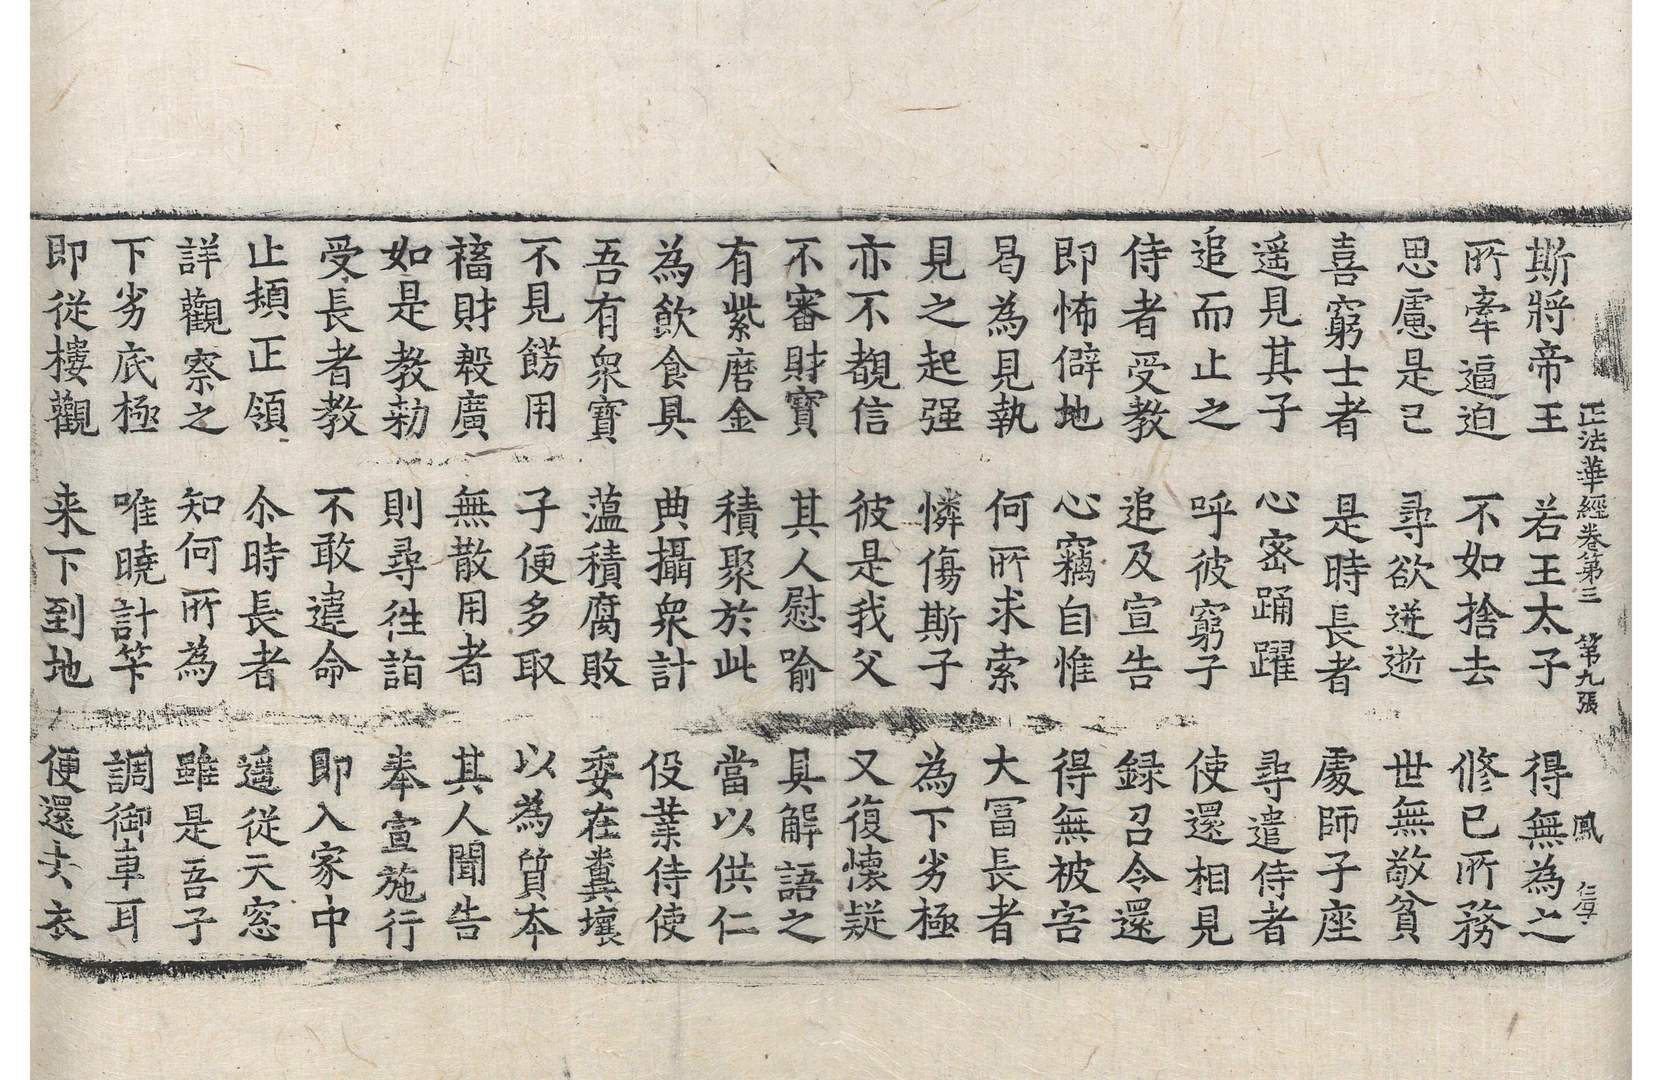 正法華經卷第三 第九張 鳳
斯將帝王 若王太子 得無為之
所牽逼迫 不如捨去 修已所務
思慮是已 尋欲迸逝 世無敬貧
喜窮士者 是時長者 處師子座
遥見其子 心密踊躍 尋遣侍者
追而止之 呼彼窮子 使還相見
侍者受教 追及宣告 録召令還
即怖僻地 心竊自惟 得無被害
曷為見執 何所求索 大冨長者
見之起强 憐傷斯子 為下劣極
亦不覩信 彼是我父 又復懷疑
不審財寶 其人慰喻 具解語之
有紫磨金 積聚於此 當以供仁
為飲食具 典攝衆計 役業侍使
吾有衆寶 蕰積腐敗 委在糞壤
不見餝用 子便多取 以為質本
穡財殺廣 無散用者 其人聞告
如是教勑 則尋徃詣 奉宣施行
受長者教 不敢違命 即入家中
止頰正領 尒時長者 遥從天窓
詳觀察之 知何所為 雖是吾子
下劣底極 唯曉計筭 調御車耳
即從樓觀 来下到地 便還去衣